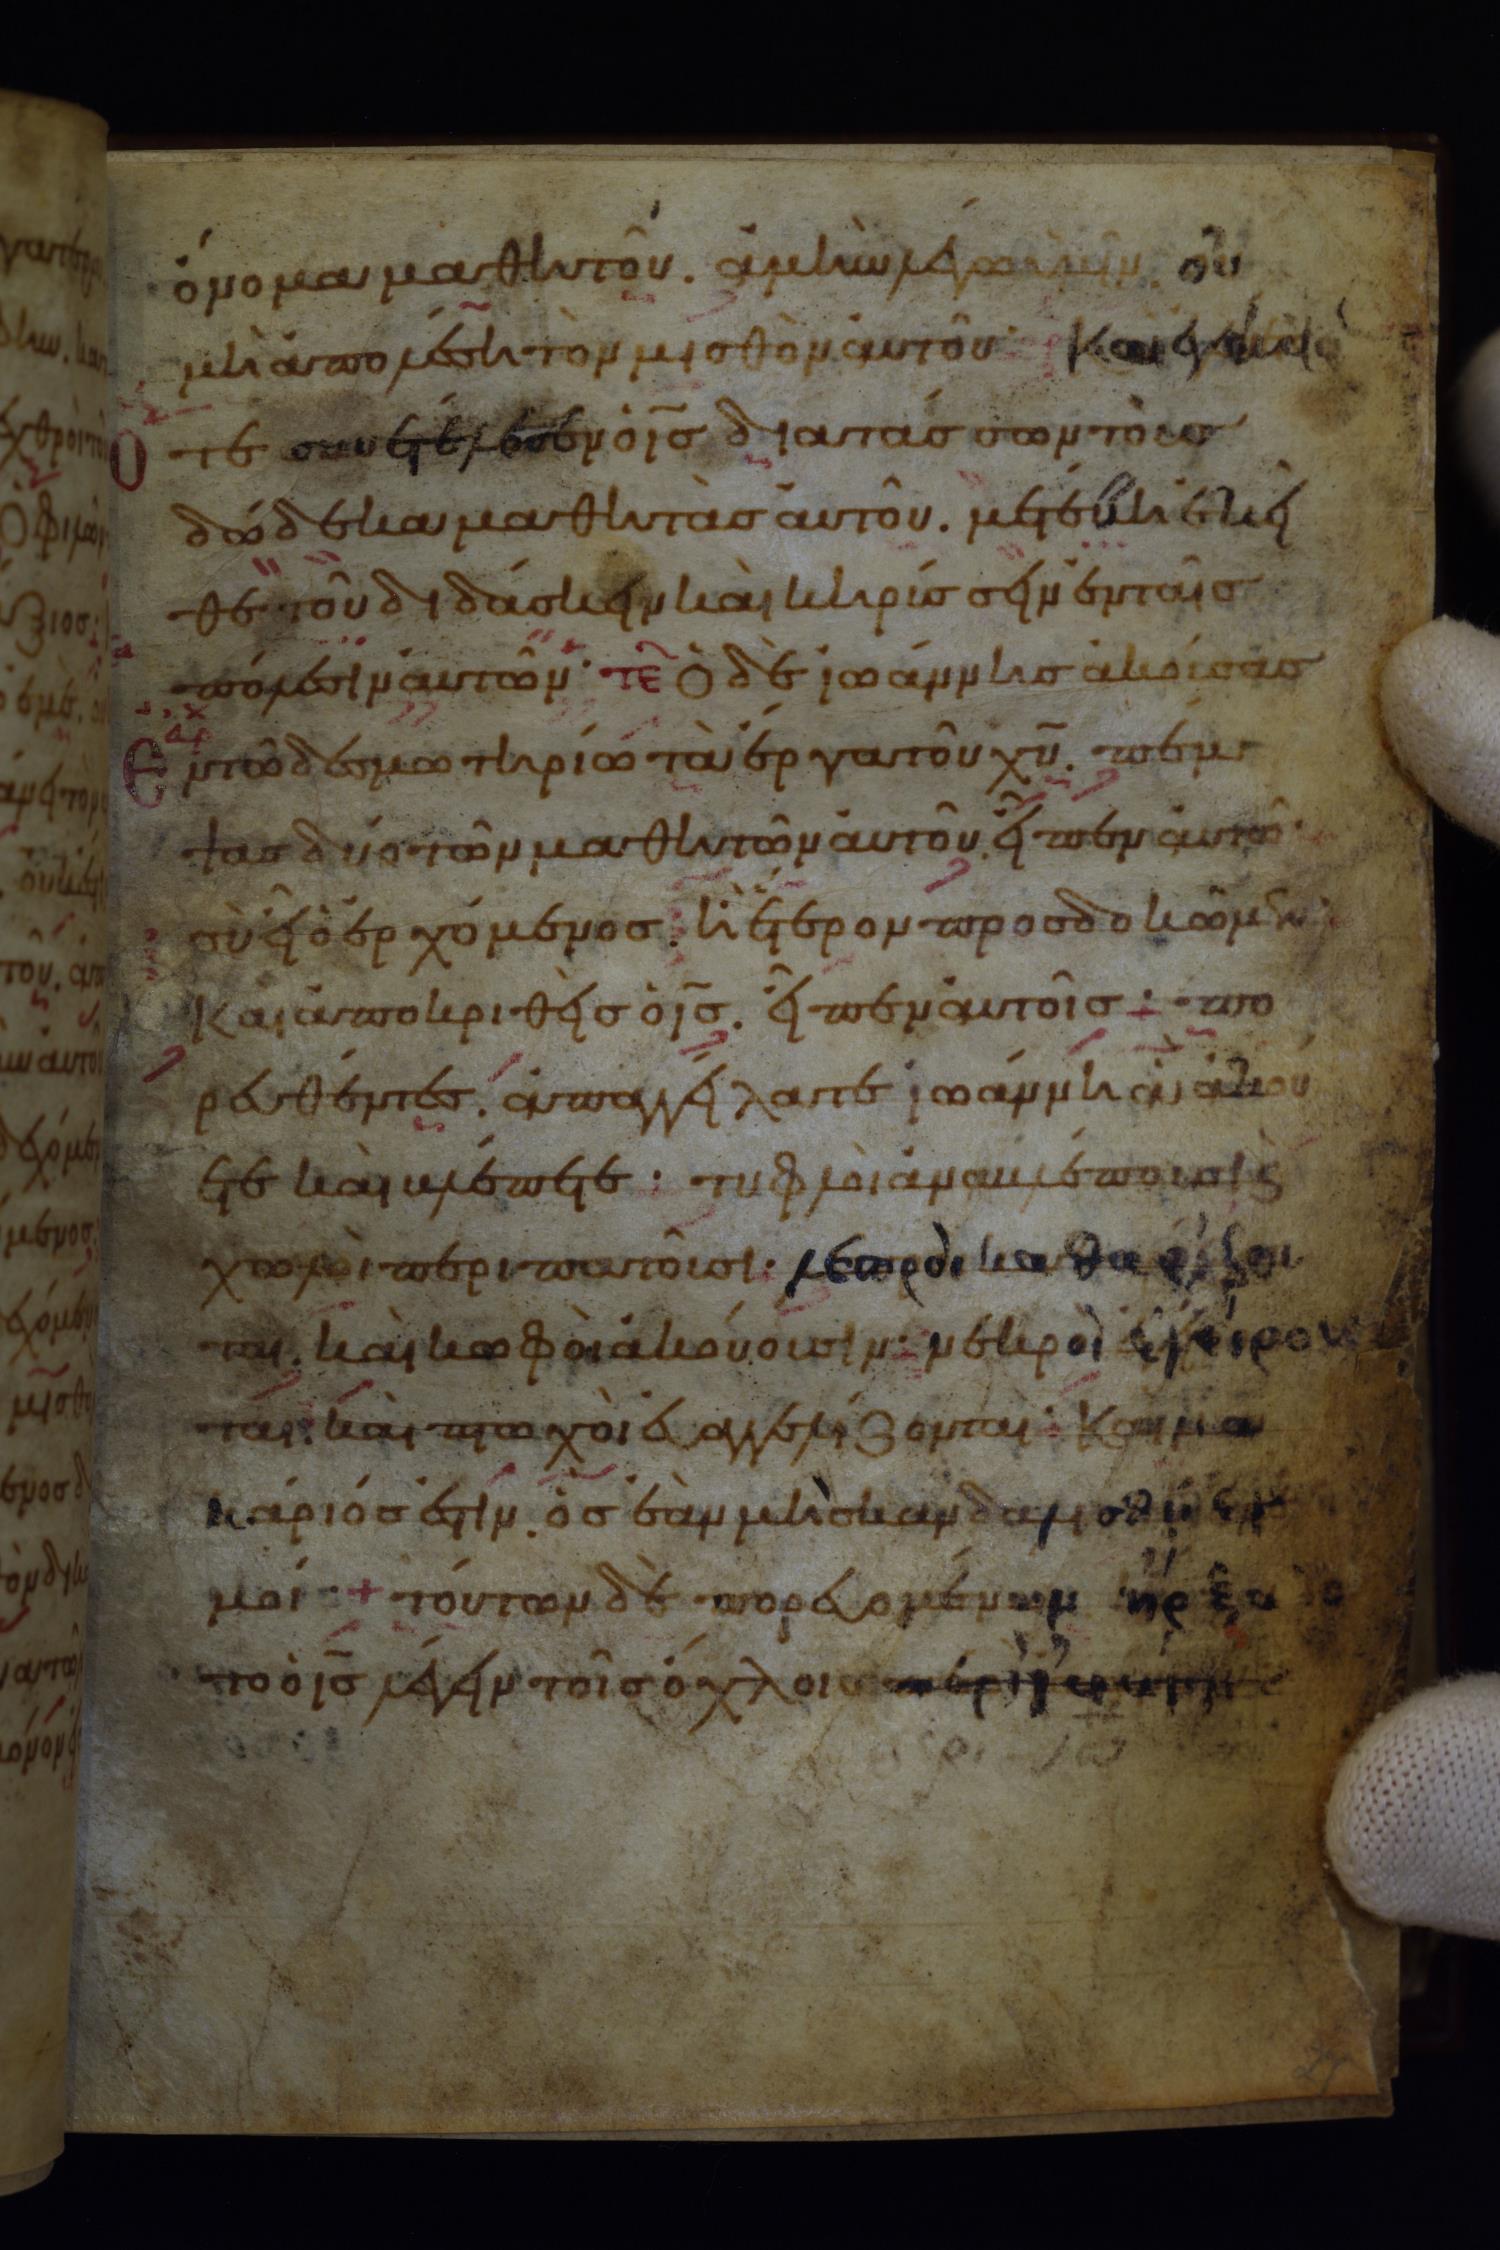 ὄνομα μαθητοῦ. ἀμὴν λέγω ὑμῖν οὐ
μὴ ἀπολέσῃ τὸν μισθὸν αὐτοῦ· Και ἐγένετο
ὅτε ἐτέλεσεν ὁ ις̅ διατάσσων τοῖς
δώδεκα μαθητὰσ ἀυτοῦ. μετέβη ἐκεῖ
θε τοῦ διδάσκειν και κηρύσσειν ἐν ταῖσ
πόλεσιν ἀυτῶν· τε Ὁ δὲ ἰωάννησ ἀκούσασ
Ἐν τῶ δεσμωτηρίω τὰ ἔργα τοῦ χυ̅. πέμ
ψασ δύο τῶν μαθητῶν ἀυτοῦ. εἶπεν ἀυτῶ·
σὺ εἶ ὁ ἐρχόμενοσ. ἢ ἕτερον προσδοκῶμεν·
Και ἀποκριθεὶσ ὁ ις̅. εἶπεν ἀυτοῖσ + πο
ρευθέντεσ. ἀπαγγείλατε ἰωάννη ἃ ἀκού
ετε και βλέπετε : τυφλοὶ ἀναβλέπουσι ϛ
χωλοὶ περιπατοῦσι· λεπροὶ καθαρίζον
ται. και κωφοὶ ἀκούουσιν· νεκροὶ ἐγείρον
ται. και πτωχοὶ ἐυαγγελίζονται· Και μα
κάριόσ ἐστιν. ὃσ ἐὰν μὴ σκανδαλισθῆ ἐν
μοί + τούτων δὲ πορευομένων ἤρξατο
ὁ ις̅ λέγειν τοῖσ ὄχλοισ περὶ
27